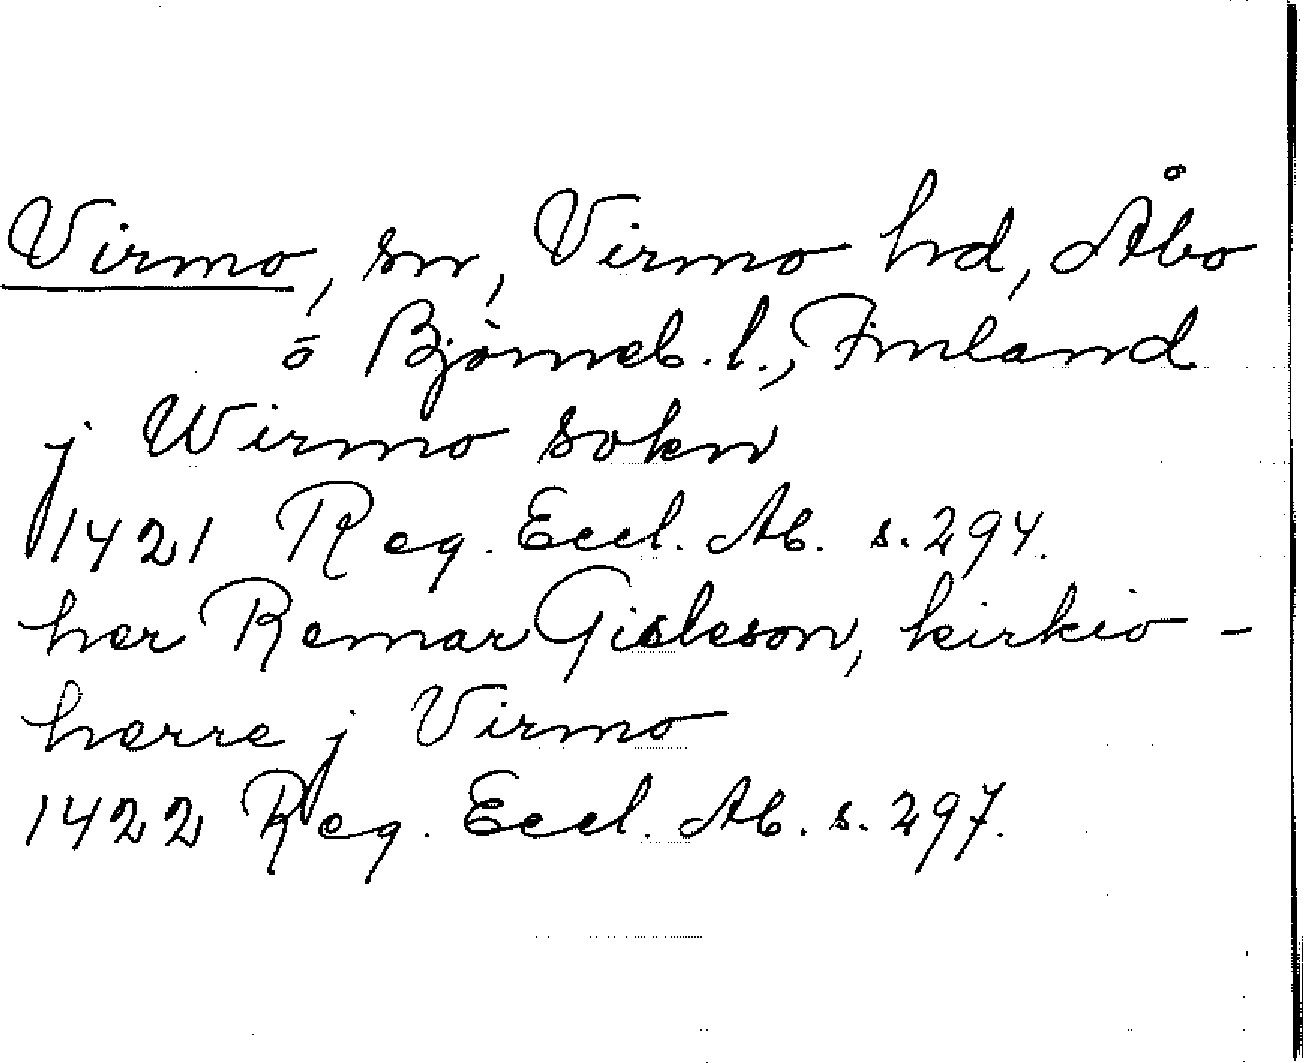 Virmo, sn, Virmo hd, Åbo
o Björneb. l., Finland
j Wirmo sokn
1421 Reg. Eccl. Ab. s. 294.
her Remar Gisleson, kirkio-
herre j Virmo
1422 Reg. Eccl. Ab. s. 297.